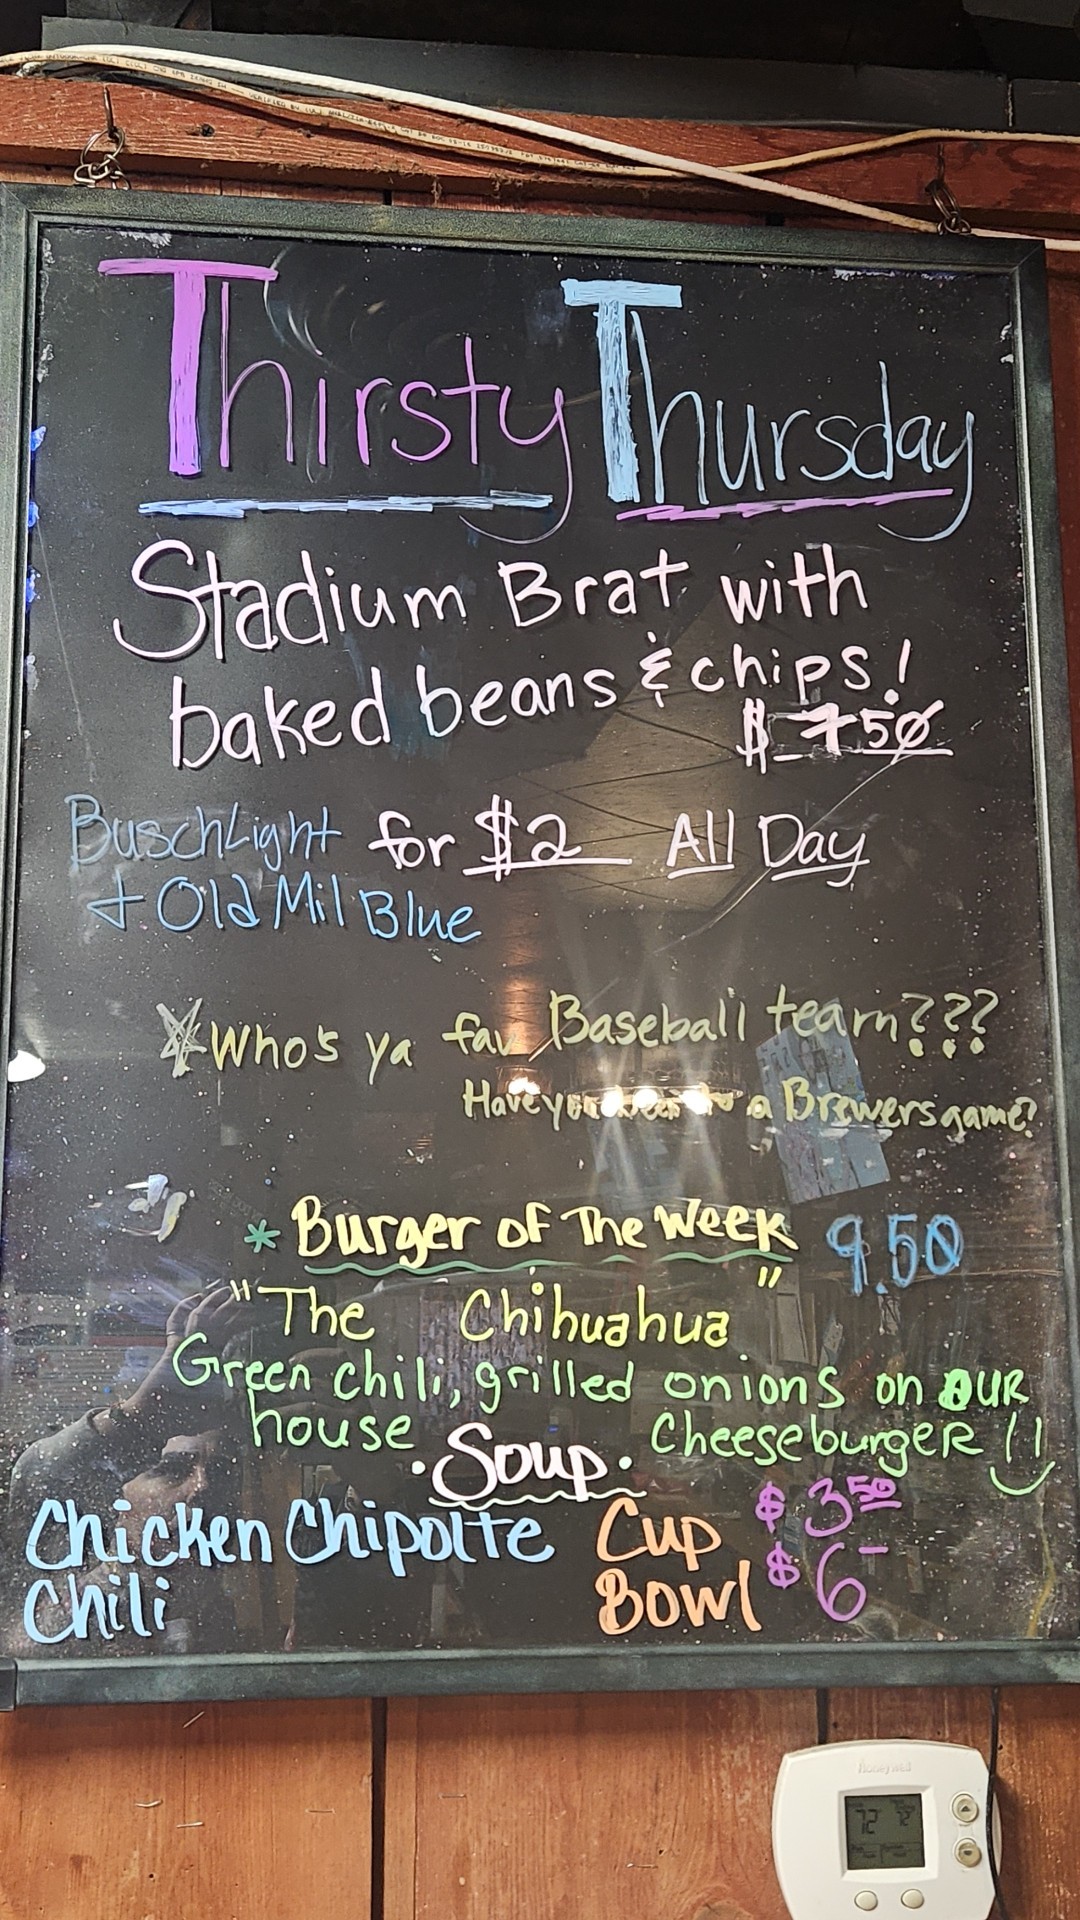 Thirsty Thursday
Stadium Brat with
baked beans & chips!
$ 7 50
Busch Light for $2 All Day
+ Old Mil Blue
Who's ya fav Baseball team???
Have you been to a Brewers game?
* Burger of The Week 9.50
"The Chihuahua"
Green chili, grilled onions on OUR
house CheeseburgeR !!
• Soup •
Chicken Chipolte Cup $3 50
Chili Bowl $6 –
Honeywell
72 72